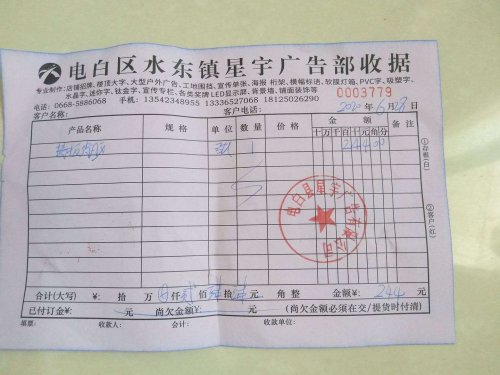 电白区水东镇星宇广告部收据
专业制作:店铺招牌、楼顶大字、大型户外广告、工地围挡、宣传单张、海报 桁架、横幅标语、软膜灯箱、PVC字、吸塑字、
水晶字、迷你字、钛金字、宣传专栏、各类奖牌LED显示屏、背景墙、铺面装饰等
0003779
电话:0668-5886068 手机:13542348955 13336527068 18125026290
客户名称: 客户电话: 2020年6月28日
产品名称 规格 单位 数量 价格 金额 备注
十万千百十元角分
张 1 24400
①存根(白)
②客户(红)
电白县星宇广告有限公司
合计(大写) ¥: 拾 万 仟贰佰肆拾肆元 角整 金额¥: 244
已付订金¥: 元 尚欠金额¥: 元 (尚欠金额必须在交/提货时付清)
填票: 收款人: 会计: 收款单位: